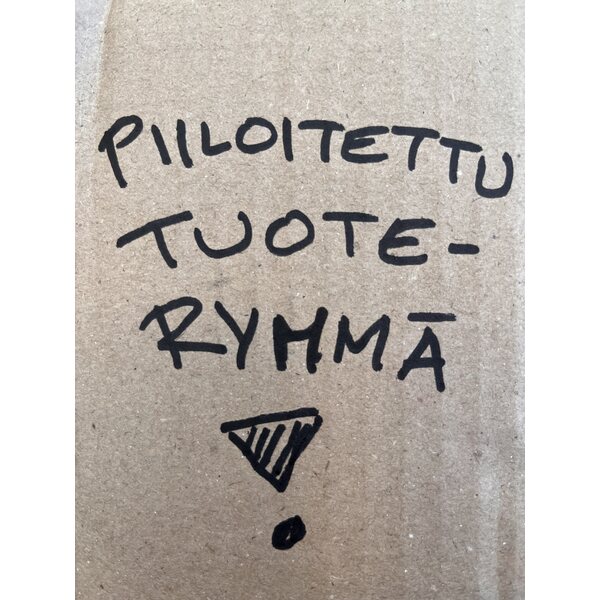 PIILOITETTU
TUOTE-
RYHMÄ
!